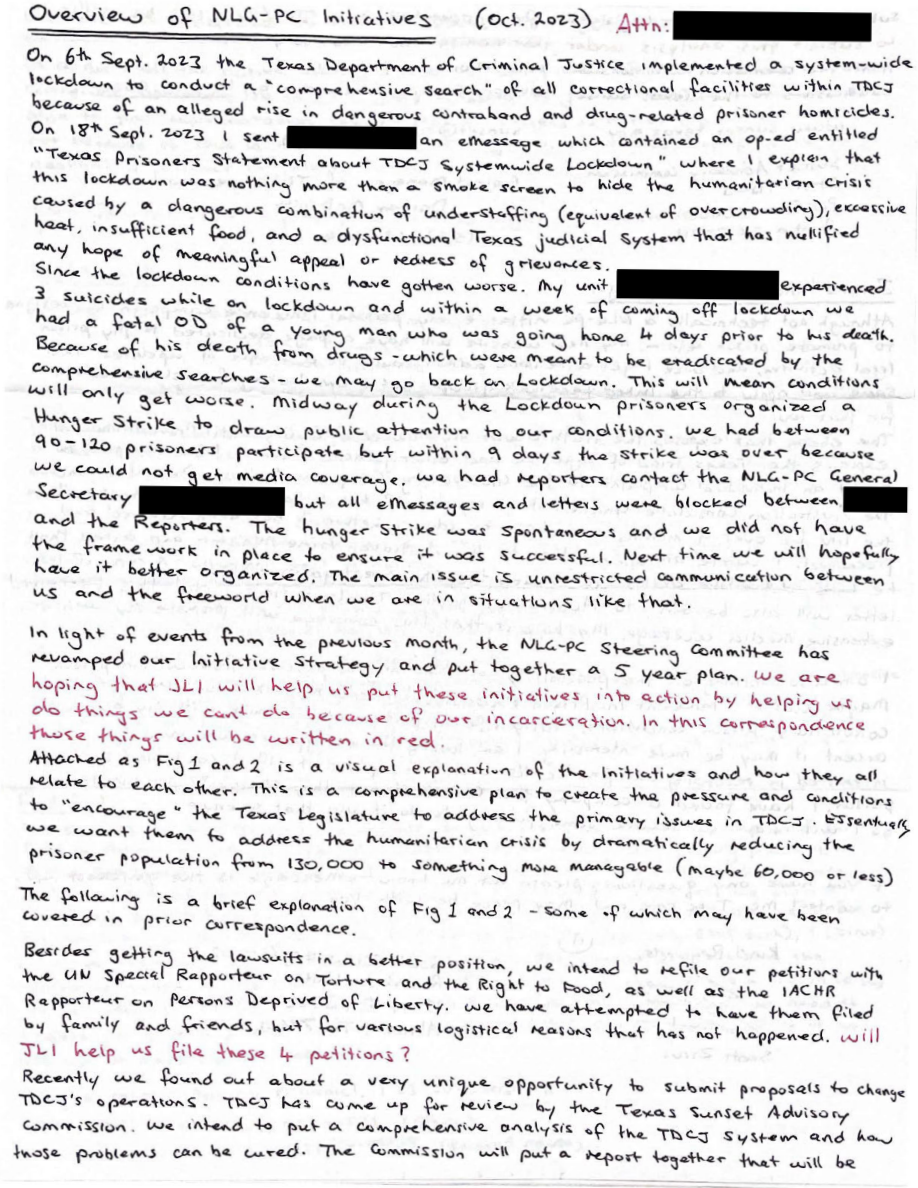 Overview of NLG-PC Initiatives (Oct. 2023) Attn:
On 6th Sept. 2023 the Texas Department of Criminal Justice implemented a system-wide
lockdown to conduct a "comprehensive search" of all correctional facilities within TDCJ
because of an alleged rise in dangerous contraband and drug-related prisoner homicides.
On 18th Sept. 2023 I sent an eMessage which contained an op-ed entitled
"Texas Prisoners Statement about TDCJ Systemwide Lockdown" where I explain that
this lockdown was nothing more than a smoke screen to hide the humanitarian crisis
caused by a dangerous combination of understaffing (equivalent of overcrowding), excessive
heat, insufficient food, and a dysfunctional Texas judicial system that has nullified
any hope of meaningful appeal or redress of grievances.
Since the lockdown conditions have gotten worse. My unit experienced
3 suicides while on lockdown and within a week of coming off lockdown we
had a fatal OD of a young man who was going home 4 days prior to his death.
Because of his death from drugs - which were meant to be eradicated by the
comprehensive searches - we may go back on Lockdown. This will mean conditions
will only get worse. Midway during the Lockdown prisoners organized a
Hunger Strike to draw public attention to our conditions. we had between
90-120 prisoners participate but within 9 days the strike was over because
we could not get media coverage. we had reporters contact the NLG-PC General
Secretary but all eMessages and letters were blocked between
and the Reporters. The hunger Strike was spontaneous and we did not have
the framework in place to ensure it was successful. Next time we will hopefully
have it better organized. The main issue is unrestricted communication between
us and the freeworld when we are in situations like that.
In light of events from the previous month, the NLG-PC Steering Committee has
revamped our Initiative Strategy and put together a 5 year plan. we are
hoping that JLI will help us put these initiatives into action by helping us
do things we cant do because of our incarceration. In this correspondence
those things will be written in red
Attached as Fig 1 and 2 is a visual explanation of the Initiatives and how they all
relate to each other. This is a comprehensive plan to create the pressure and conditions
to "encourage" the Texas Legislature to address the primary issues in TDCJ. Essentually
we want them to address the humanitarian crisis by dramatically reducing the
prisoner population from 130,000 to something more managable (maybe 60,000 or less)
The following is a brief explanation of Fig 1 and 2 - some of which may have been
covered in prior correspondence.
Besides getting the lawsuits in a better position, we intend to refile our petitions with
the UN Special Rapporteur on Torture and the Right to Food, as well as the IACHR
Rapporteur on Persons Deprived of Liberty. we have attempted to have them filed
by family and friends, but for various logistical reasons that has not happened. will
JLI help us file these 4 petitions?
Recently we found out about a very unique opportunity to submit proposals to change
TDCJ's operations. TDCJ has come up for review by the Texas Sunset Advisory
Commission. we intend to put a comprehensive analysis of the TDCJ System and how
those problems can be cured. The Commission will put a report together that will be